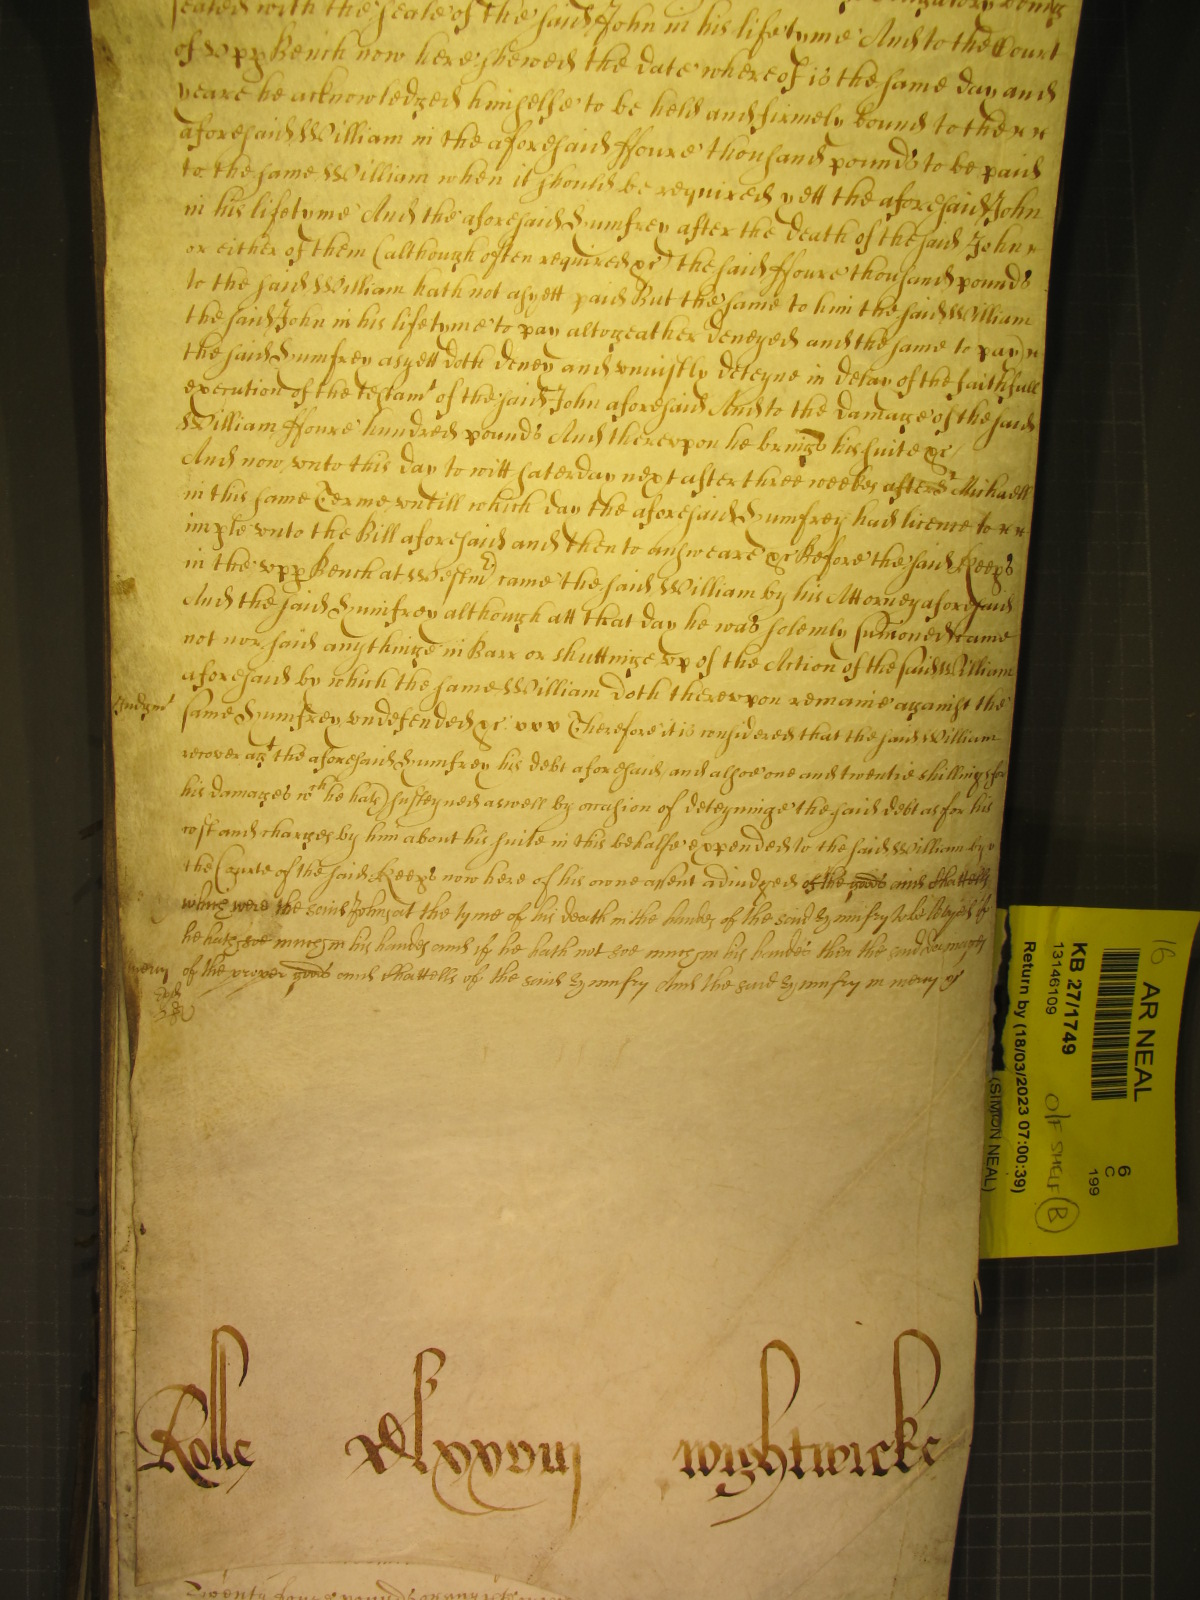 sealed with the seale of the said John in his lifetyme And to the Court
of vpp Bench now here shewed the date whereof is the same day and
yeare he acknowledged himselfe to be held and firmely bound to the
aforesaid William in the aforesaid ffoure thousand pounds to be paid
to the same William when it should be required yett the aforesaid John
in his lifetyme And the aforesaid Humfrey after the death of the said John
or either of them (although often required &c) the said ffoure thousand pounds
to the said William hath not as yett paid But the same to him the said William
the said John in his lifetyme to pay altogeather denyed and the same to pay
the said Humfrey as yett doth deney and vniustly deteyne in delay of the faithfull
execution of the testamt of the said John aforesaid And to the damage of the said
William ffoure hundred pounds And therevpon he brings his suite &c
And now vnto this day to witt saterday next after three weekes after St Michaell
in this same Terme vntill which day the aforesaid Humfrey had licence to
imple vnto the Bill aforesaid and then to answeare &c Before the said Keeps
in the vpp Bench at Westmr came the said William by his Attorney aforesaid
And the said Humfrey although att that day he was solemly sumoned came
not nor said anythinge in Barr or shuttinge vp of the Action of the said William
aforesaid by which the same William doth therevpon remaine against the
Iudgmt
same Humfrey vndefended &c Therefore it is considered that the said William
recover agt the aforesaid Humfrey his debt aforesaid and alsoe one and twentie shillings for
his damages wch he hath susteyned aswell by occasion of deteyninge the said debt as for his
cost and charges by him about his suite in this behalfe expended to the said William by
the Courte of the said Keeps now here of his owne assent adiudged of the goods and Chattells
which were the said Johns at the tyme of his death in the hands of the said Hymnfry to be levyed if
he hath soe much in his hands and if he hath not soe much in his hands then the said damages
mercy
of the proper goods and Chattells of the said Hymnfry And the said Hymnfry in mercy &c
Rolle
wightwicke
16
AR NEAL
KB 27/1749
13146109
Return by (18/03/2023 07:00:39)
(SIMON NEAL)
O/F SHELF B
6
C
199